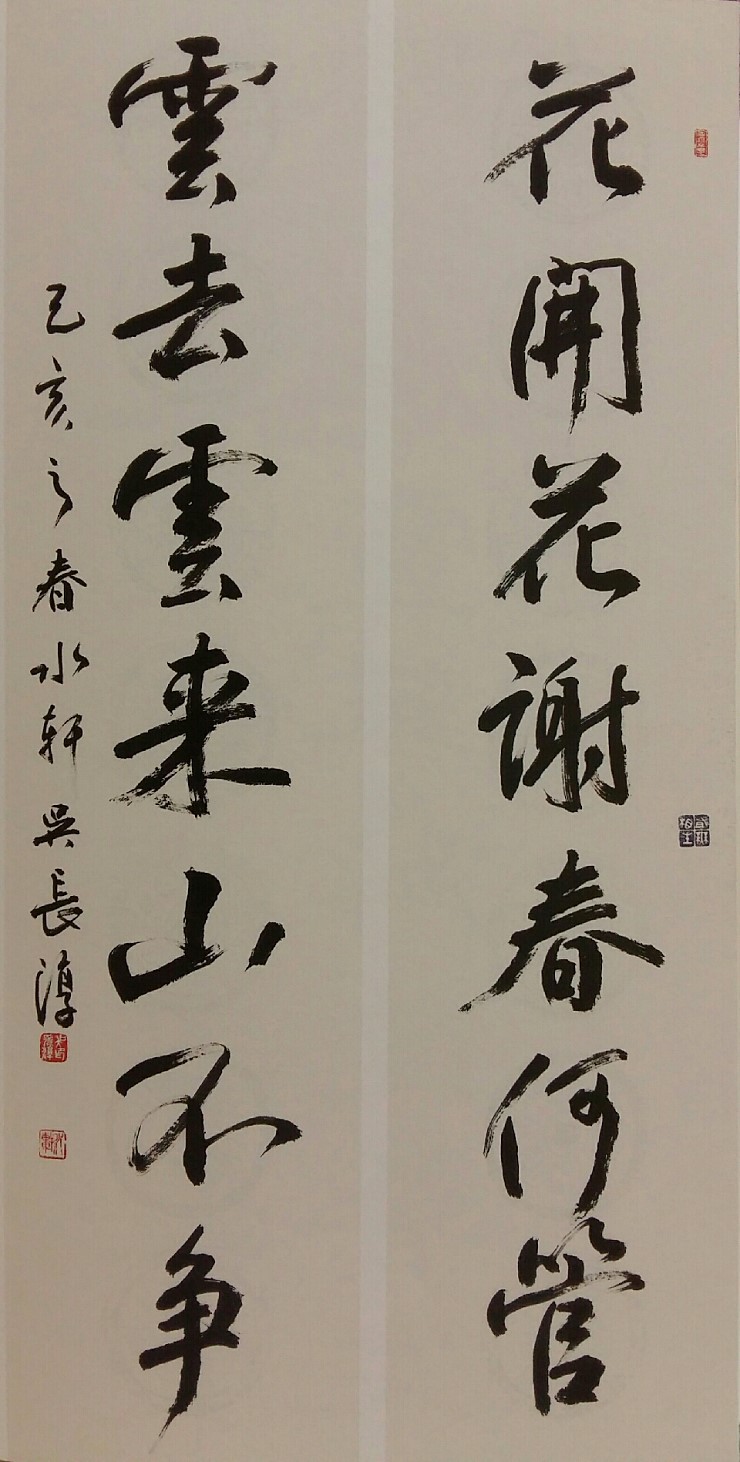 花開花謝春何管
雲去雲来山不争
己亥之春水軒吳長淳